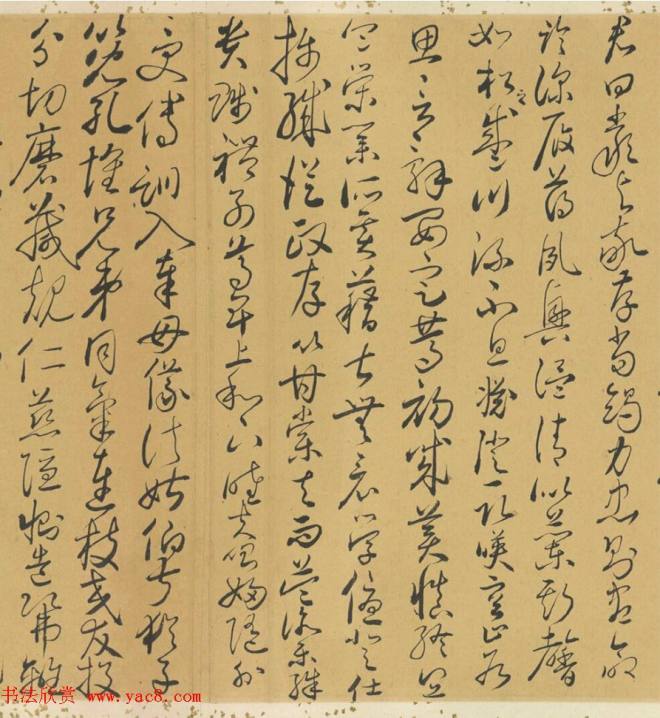 君曰嚴與敬孝當竭力忠則盡命
臨深履薄夙興溫清似蘭斯馨
如松之盛川流不息淵澄取映容止若
思言辭安定篤初誠美慎終宜
令榮業所基藉甚無竟學優登仕
攝職從政存以甘棠去而益詠樂殊
貴賤禮別尊卑上和下睦夫唱婦隨外
受傅訓入奉母儀諸姑伯叔猶子
比兒孔懷兄弟同氣連枝交友投
分切磨箴規仁慈隱惻造次弗離
书法欣赏 www.yac8.com